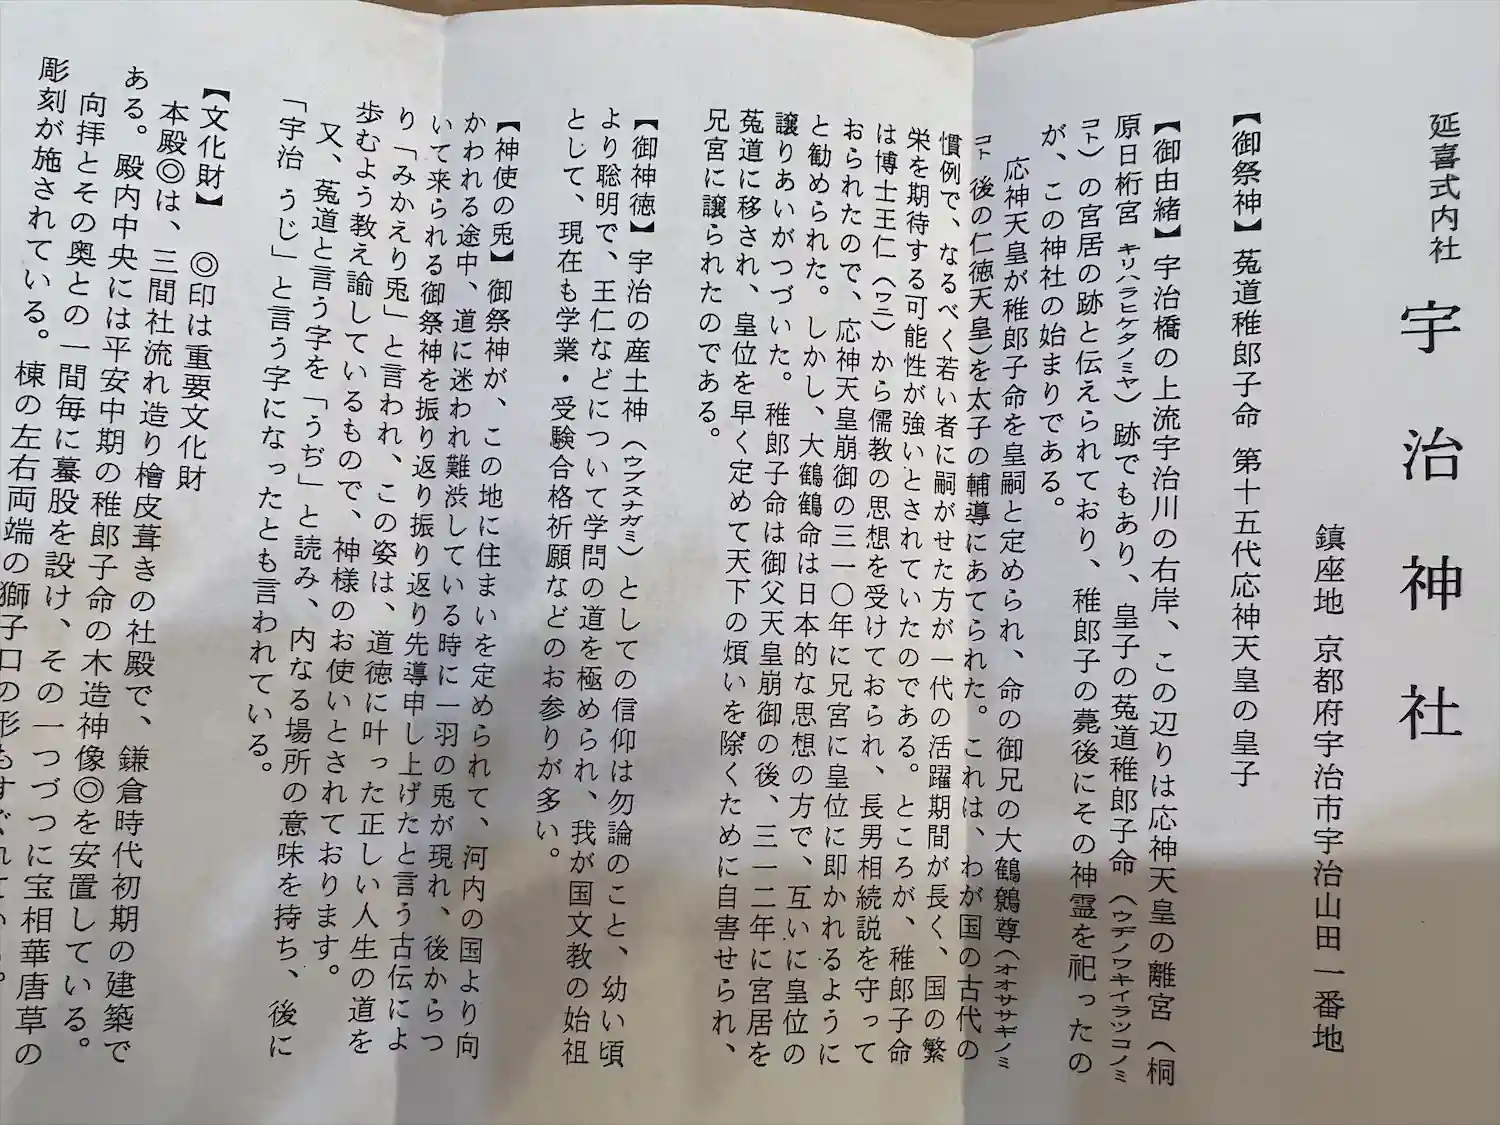 延喜式内社 宇治神社
鎮座地 京都府宇治市宇治山田一番地
【御祭神】菟道稚郎子命 第十五代応神天皇の皇子
【御由緒】宇治橋の上流宇治川の右岸、この辺りは応神天皇の離宮（桐
原日桁宮 キリハラヒケタノミヤ）跡でもあり、皇子の菟道稚郎子命（ウヂノワキイラツコノミ
コト）の宮居の跡と伝えられており、稚郎子の薨後にその神霊を祀ったの
が、この神社の始まりである。
応神天皇が稚郎子命を皇嗣と定められ、命の御兄の大鷦鷯尊（オオササギノミ
コト 後の仁徳天皇）を太子の輔導にあてられた。これは、わが国の古代の
慣例で、なるべく若い者に嗣がせた方が一代の活躍期間が長く、国の繁
栄を期待する可能性が強いとされていたのである。ところが、稚郎子命
は博士王仁（ワニ）から儒教の思想を受けておられ、長男相続説を守って
おられたので、応神天皇崩御の三一〇年に兄宮に皇位に即かれるように
と勧められた。しかし、大鶴鶴命は日本的な思想の方で、互いに皇位の
譲りあいがつづいた。稚郎子命は御父天皇崩御の後、三一二年に宮居を
菟道に移され、皇位を早く定めて天下の煩いを除くために自害せられ、
兄宮に譲られたのである。
【御神徳】宇治の産土神（ウブスナガミ）としての信仰は勿論のこと、幼い頃
より聡明で、王仁などについて学問の道を極められ、我が国文教の始祖
として、現在も学業・受験合格祈願などのお参りが多い。
【神使の兎】御祭神が、この地に住まいを定められて、河内の国より向
かわれる途中、道に迷われ難渋している時に一羽の兎が現れ、後からつ
いて来られる御祭神を振り返り振り返り先導申し上げたと言う古伝によ
り「みかえり兎」と言われ、この姿は、道徳に叶った正しい人生の道を
歩むよう教え諭しているもので、神様のお使いとされております。
又、菟道と言う字を「うぢ」と読み、内なる場所の意味を持ち、後に
「宇治 うじ」と言う字になったとも言われている。
【文化財】 ◎印は重要文化財
本殿◎は、三間社流れ造り檜皮葺きの社殿で、鎌倉時代初期の建築で
ある。殿内中央には平安中期の稚郎子命の木造神像◎を安置している。
向拝とその奥との一間毎に蟇股を設け、その一つづつに宝相華唐草の
彫刻が施されている。棟の左右両端の獅子口の形もすぐれて